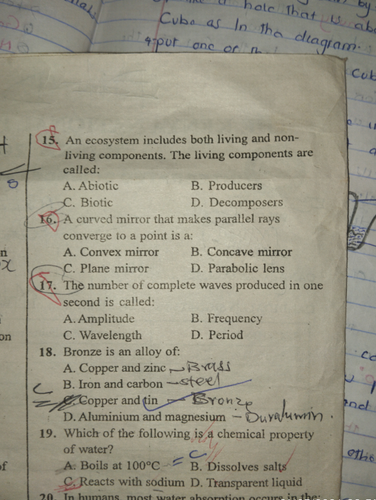 hole that is
Cube as in the diagram.
put one of
15. An ecosystem includes both living and non-
living components. The living components are
called:
A. Abiotic B. Producers
C. Biotic D. Decomposers
16. A curved mirror that makes parallel rays
converge to a point is a:
A. Convex mirror B. Concave mirror
C. Plane mirror D. Parabolic lens
17. The number of complete waves produced in one
second is called:
A. Amplitude B. Frequency
C. Wavelength D. Period
18. Bronze is an alloy of:
A. Copper and zinc – Brass
C B. Iron and carbon – steel
C. Copper and tin – Bronze
D. Aluminium and magnesium – Duralumin.
19. Which of the following is a chemical property
of water?
A. Boils at 100°C = C B. Dissolves salts
C. Reacts with sodium D. Transparent liquid
20. In humans, most water absorption occurs in the